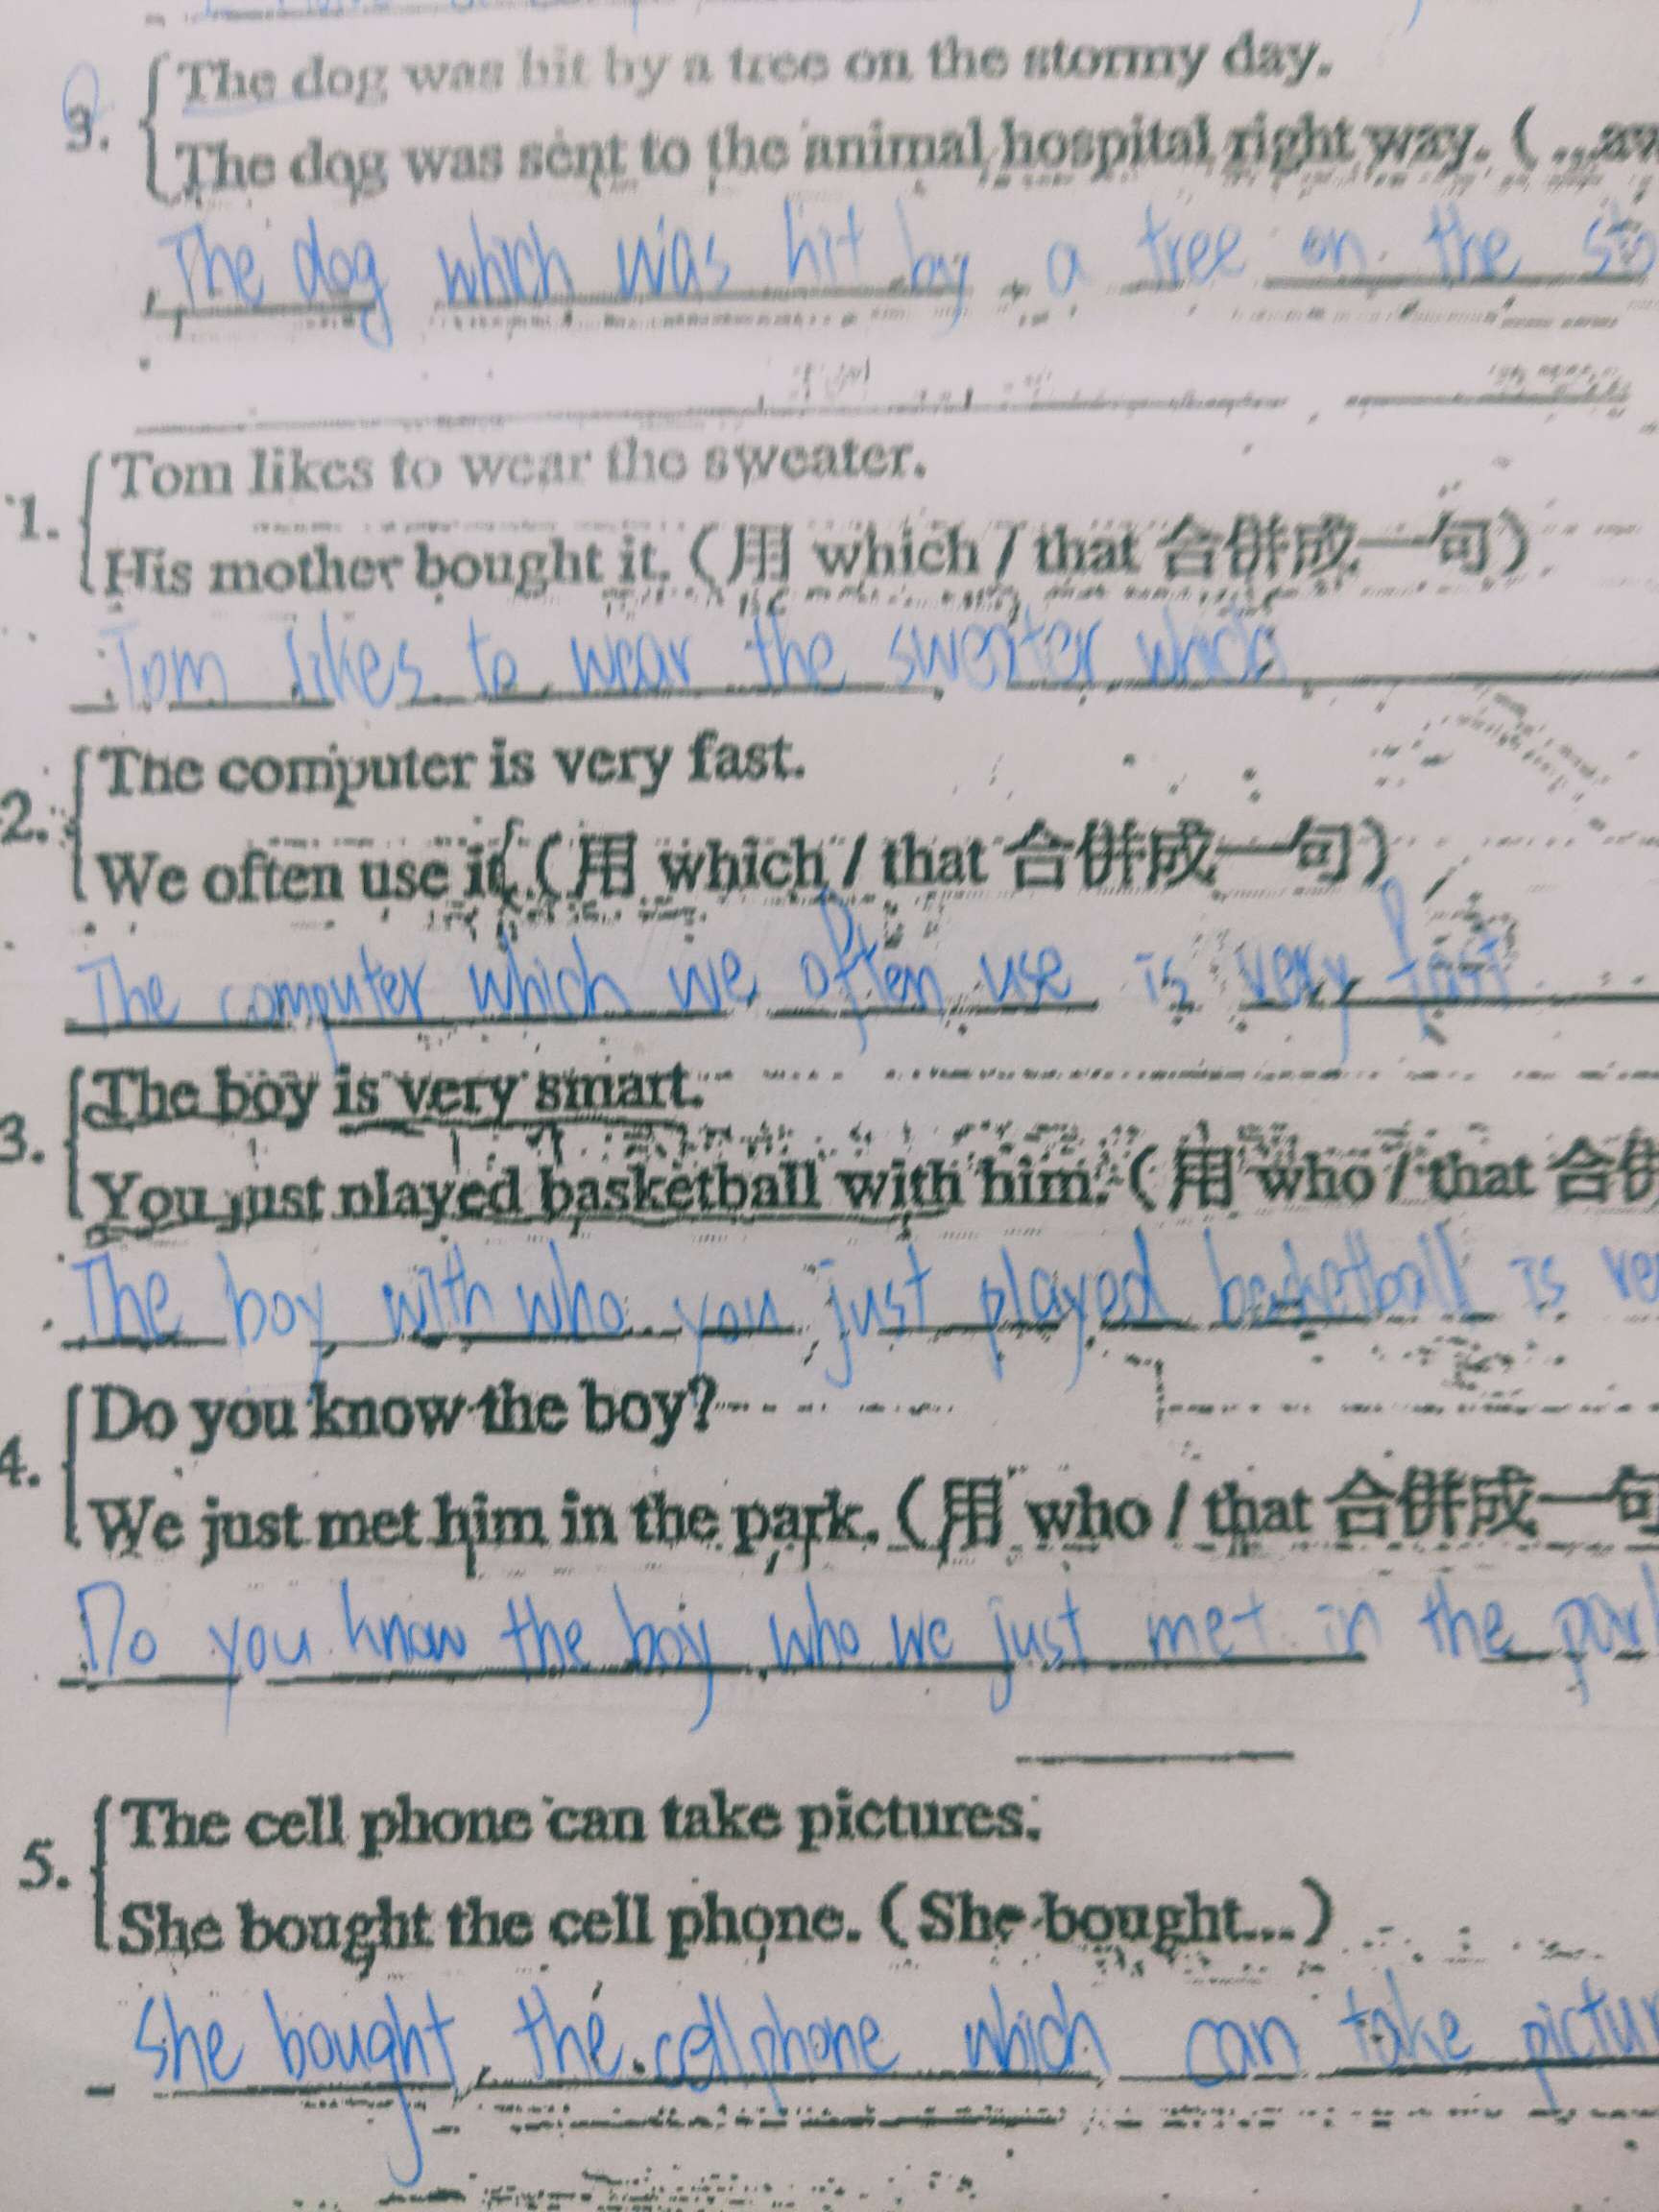 3. The dog was hit by a tree on the stormy day.
The dog was sent to the animal hospital right way. ( ...aw
The dog which was hit by a tree on the sto
1. Tom likes to wear the sweater.
His mother bought it. (用 which / that 合併成一句)
Tom likes to wear the sweater which
2. The computer is very fast.
We often use it. (用 which / that 合併成一句)
The computer which we often use is very fast
3. The boy is very smart.
You just played basketball with him. (用 who / that 合併
The boy with who you just played basketball is ve
4. Do you know the boy?
We just met him in the park. (用 who / that 合併成一句
Do you know the boy who we just met in the park
5. The cell phone can take pictures.
She bought the cell phone. (She bought...)
She bought the cellphone which can take pictur